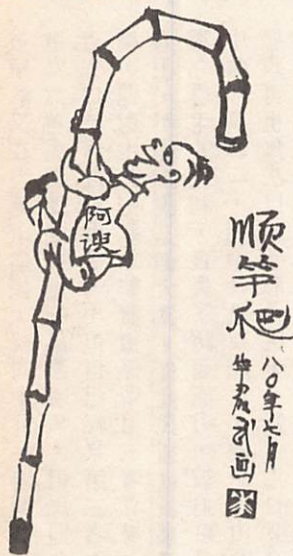 阿谀
顺竿爬
八〇年七月
华君武画